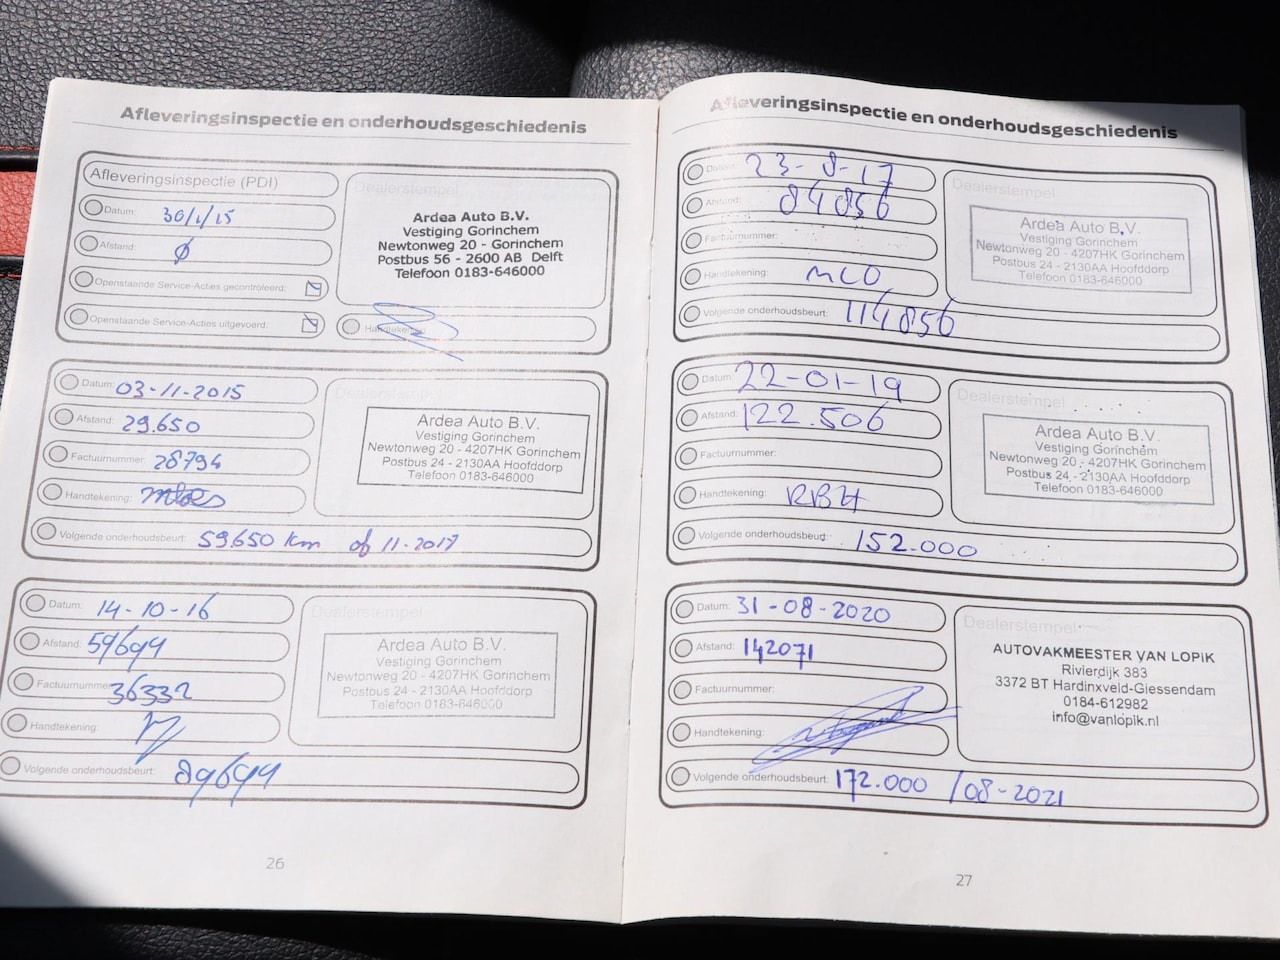 Afleveringsinspectie en onderhoudsgeschiedenis
Afleveringsinspectie (PDI)
Datum: 30/1/15
Afstand: Ø
Openstaande Service-Acties gecontroleerd:
Openstaande Service-Acties uitgevoerd:
Dealerstempel
Ardea Auto B.V.
Vestiging Gorinchem
Newtonweg 20 - Gorinchem
Postbus 56 - 2600 AB Delft
Telefoon 0183-646000
Handtekening:
Datum: 03-11-2015
Afstand: 29.650
Factuurnummer: 28794
Handtekening:
Volgende onderhoudsbeurt: 59.650 km of 11-2017
Dealerstempel
Ardea Auto B.V.
Vestiging Gorinchem
Newtonweg 20 - 4207HK Gorinchem
Postbus 24 - 2130AA Hoofddorp
Telefoon 0183-646000
Datum: 14-10-16
Afstand: 59694
Factuurnummer: 36332
Handtekening:
Volgende onderhoudsbeurt: 89694
Dealerstempel
Ardea Auto B.V.
Vestiging Gorinchem
Newtonweg 20 - 4207HK Gorinchem
Postbus 24 - 2130AA Hoofddorp
Telefoon 0183-646000
26
Afleveringsinspectie en onderhoudsgeschiedenis
Datum: 23-8-17
Afstand: 84856
Factuurnummer:
Handtekening: MCO
Volgende onderhoudsbeurt: 114856
Dealerstempel
Ardea Auto B.V.
Vestiging Gorinchem
Newtonweg 20 - 4207HK Gorinchem
Postbus 24 - 2130AA Hoofddorp
Telefoon 0183-646000
Datum: 22-01-19
Afstand: 122.506
Factuurnummer:
Handtekening: RBH
Volgende onderhoudsbeurt: 152.000
Dealerstempel
Ardea Auto B.V.
Vestiging Gorinchem
Newtonweg 20 - 4207HK Gorinchem
Postbus 24 - 2130AA Hoofddorp
Telefoon 0183-646000
Datum: 31-08-2020
Afstand: 142071
Factuurnummer:
Handtekening:
Volgende onderhoudsbeurt: 172.000 /08-2021
Dealerstempel
AUTOVAKMEESTER VAN LOPIK
Rivierdijk 383
3372 BT Hardinxveld-Giessendam
0184-612982
info@vanlopik.nl
27